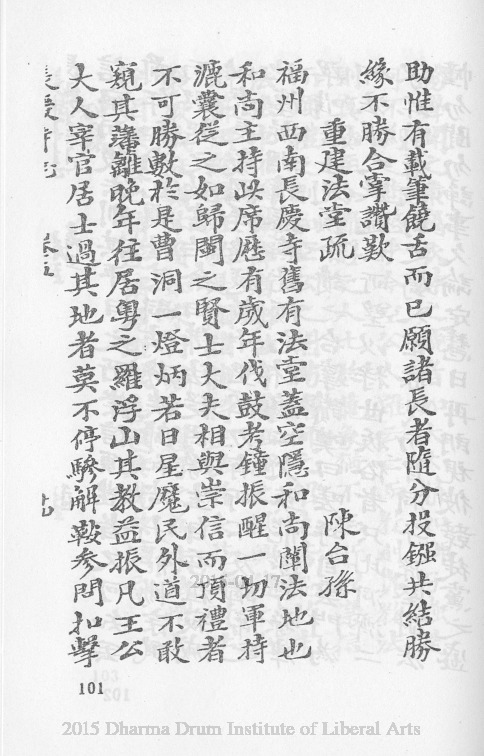 助惟有載筆饒舌而已願諸長者隨分投鏹共結勝
緣不勝合掌讚歎
重建法堂疏 陳台孫
福州西南長慶寺舊有法堂蓋空隱和尚闡法地也
和尚主持此席歷有歲年伐鼓考鐘振醒一切軍持
漉囊從之如歸閩之賢士大夫相與崇信而頂禮者
不可勝數於是曹洞一燈炳若日星魔民外道不敢
窺其藩籬晚年往居粵之羅浮山其教益振凡王公
大人宰官居士過其地者莫不停驂解鞍參問扣擊
長慶寺志 卷五 十七
101
2015 Dharma Drum Institute of Liberal Arts